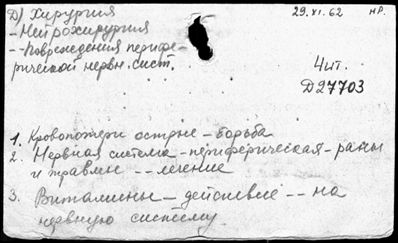 Д) Хирургия
29.XI.62 нр.
- Нейрохирургия
-- Повреждения перифе-
рической нервн. сист.
Чит.
Д27703
1. Кровопотери острые - борьба
2. Нервная система - периферическая - раны
и травмы -- лечение
3. Витамины - действие -- на
нервную систему